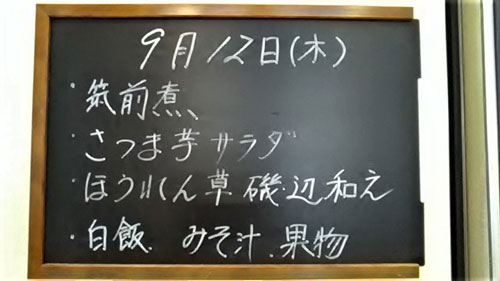 9月12日(木)
・筑前煮、
・さつま芋サラダ
・ほうれん草磯辺和え
・白飯.みそ汁.果物